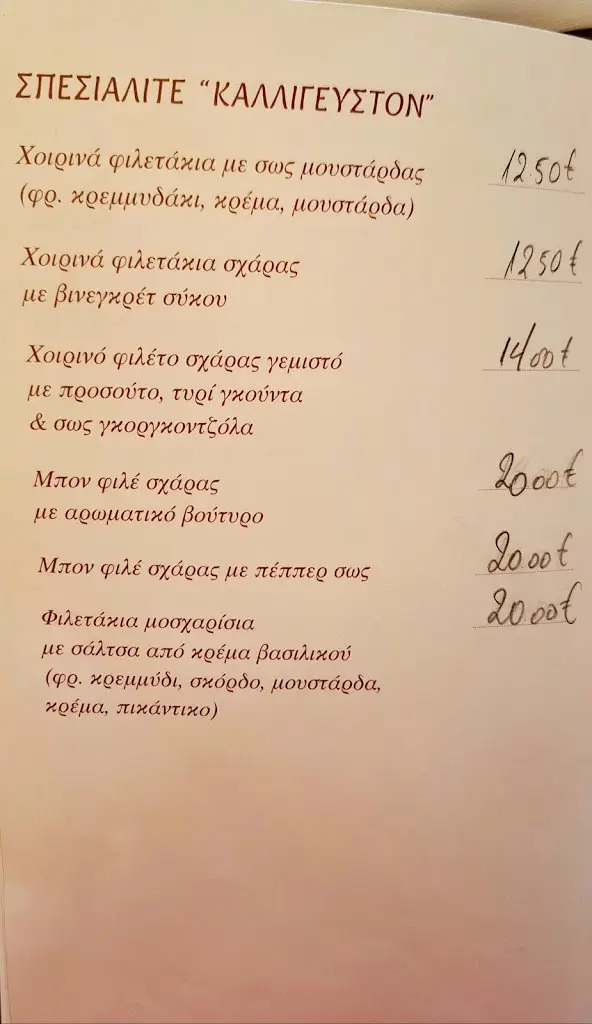 ΣΠΕΣΙΑΛΙΤΕ “ΚΑΛΛΙΓΕΥΣΤΟΝ”
Χοιρινά φιλετάκια με σως μουστάρδας 12.50€
(φρ. κρεμμυδάκι, κρέμα, μουστάρδα)
Χοιρινά φιλετάκια σχάρας 12 50 €
με βινεγκρέτ σύκου
Χοιρινό φιλέτο σχάρας γεμιστό 14/00€
με προσούτο, τυρί γκούντα
& σως γκοργκοντζόλα
Μπον φιλέ σχάρας 20.00€
με αρωματικό βούτυρο
Μπον φιλέ σχάρας με πέππερ σως 20.00€
Φιλετάκια μοσχαρίσια 20.00€
με σάλτσα από κρέμα βασιλικού
(φρ. κρεμμύδι, σκόρδο, μουστάρδα,
κρέμα, πικάντικο)